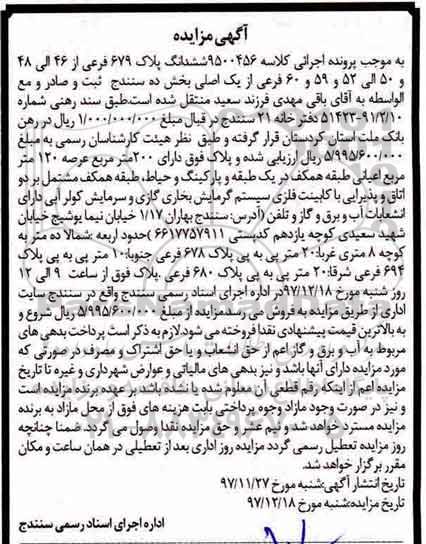 آگهی مزایده
به موجب پرونده اجرائی کلاسه ۹۵۰۰۴۵۶ششدانگ پلاک ۶۷۹ فرعی از ۴۶ الی ۴۸
و ۵۰ الی ۵۲ و ۵۹ و ۶۰ فرعی از یک اصلی بخش ده سنندج ثبت و صادر و مع
الواسطه به آقای باقی مهدی فرزند سعید منتقل شده است.طبق سند رهنی شماره
۵۱۴۲۳-۹۱/۲/۱۰ دفتر خانه ۲۱ سنندج در قبال مبلغ ۱/۰۰۰/۰۰۰/۰۰۰ ریال در رهن
بانک ملت استان کردستان قرار گرفته و طبق نظر هیئت کارشناسان رسمی به مبلغ
۵/۹۹۵/۶۰۰/۰۰۰ ریال ارزیابی شده و پلاک فوق دارای ۲۰۰متر مربع عرصه ۱۲۰ متر
مربع اعیانی طبقه همکف در یک طبقه و پارکینگ و حیاط، طبقه همکف مشتمل بر دو
اتاق و پذیرایی با کابینت فلزی سیستم گرمایش بخاری گازی و سرمایش کولر آبی دارای
انشعابات آب و برق و گاز و تلفن (آدرس: سنندج بهاران ۱/۱۷ خیابان نیما یوشیج خیابان
شهید سعیدی کوچه یازدهم کدپستی ۶۶۱۷۷۵۷۹۱۱ )حدود اربعه :شمالا ده متر به
کوچه ۸ متری غربا:۲۰ متر پی به پی پلاک ۶۷۸ فرعی جنوبا:۱۰ متر پی به پی پلاک
۶۹۴ فرعی شرقا:۲۰ متر پی به پی پلاک ۶۸۰ فرعی .پلاک فوق از ساعت ۹ الی ۱۲
روز شنبه مورخ ۹۷/۱۲/۱۸در اداره اجرای اسناد رسمی سنندج واقع در سنندج سایت
اداری از طریق مزایده به فروش می رسدمزایده از مبلغ ۵/۹۹۵/۶۰۰/۰۰۰ ریال شروع و
به بالاترین قیمت پیشنهادی نقدا فروخته می شود.لازم به ذکر است پرداخت بدهی های
مربوط به آب و برق و گاز اعم از حق انشعاب و یا حق اشتراک و مصرف در صورتی که
مورد مزایده دارای آنها باشد و نیز بدهی های مالیاتی و عوارض شهرداری و غیره تا تاریخ
مزایده اعم از اینکه رقم قطعی آن معلوم شده یا نشده باشد بر عهده برنده مزایده است
و نیز در صورت وجود مازاد وجوه پرداختی بابت هزینه های فوق از محل مازاد به برنده
مزایده مسترد خواهد شد و نیم عشر و حق مزایده نقدا وصول می گردد. ضمنا چنانچه
روز مزایده تعطیل رسمی گردد مزایده روز اداری بعد از تعطیلی در همان ساعت و مکان
مقرر برگزار خواهد شد.
تاریخ انتشار آگهی:شنبه مورخ ۹۷/۱۱/۲۷
تاریخ مزایده:شنبه مورخ ۹۷/۱۲/۱۸
اداره اجرای اسناد رسمی سنندج